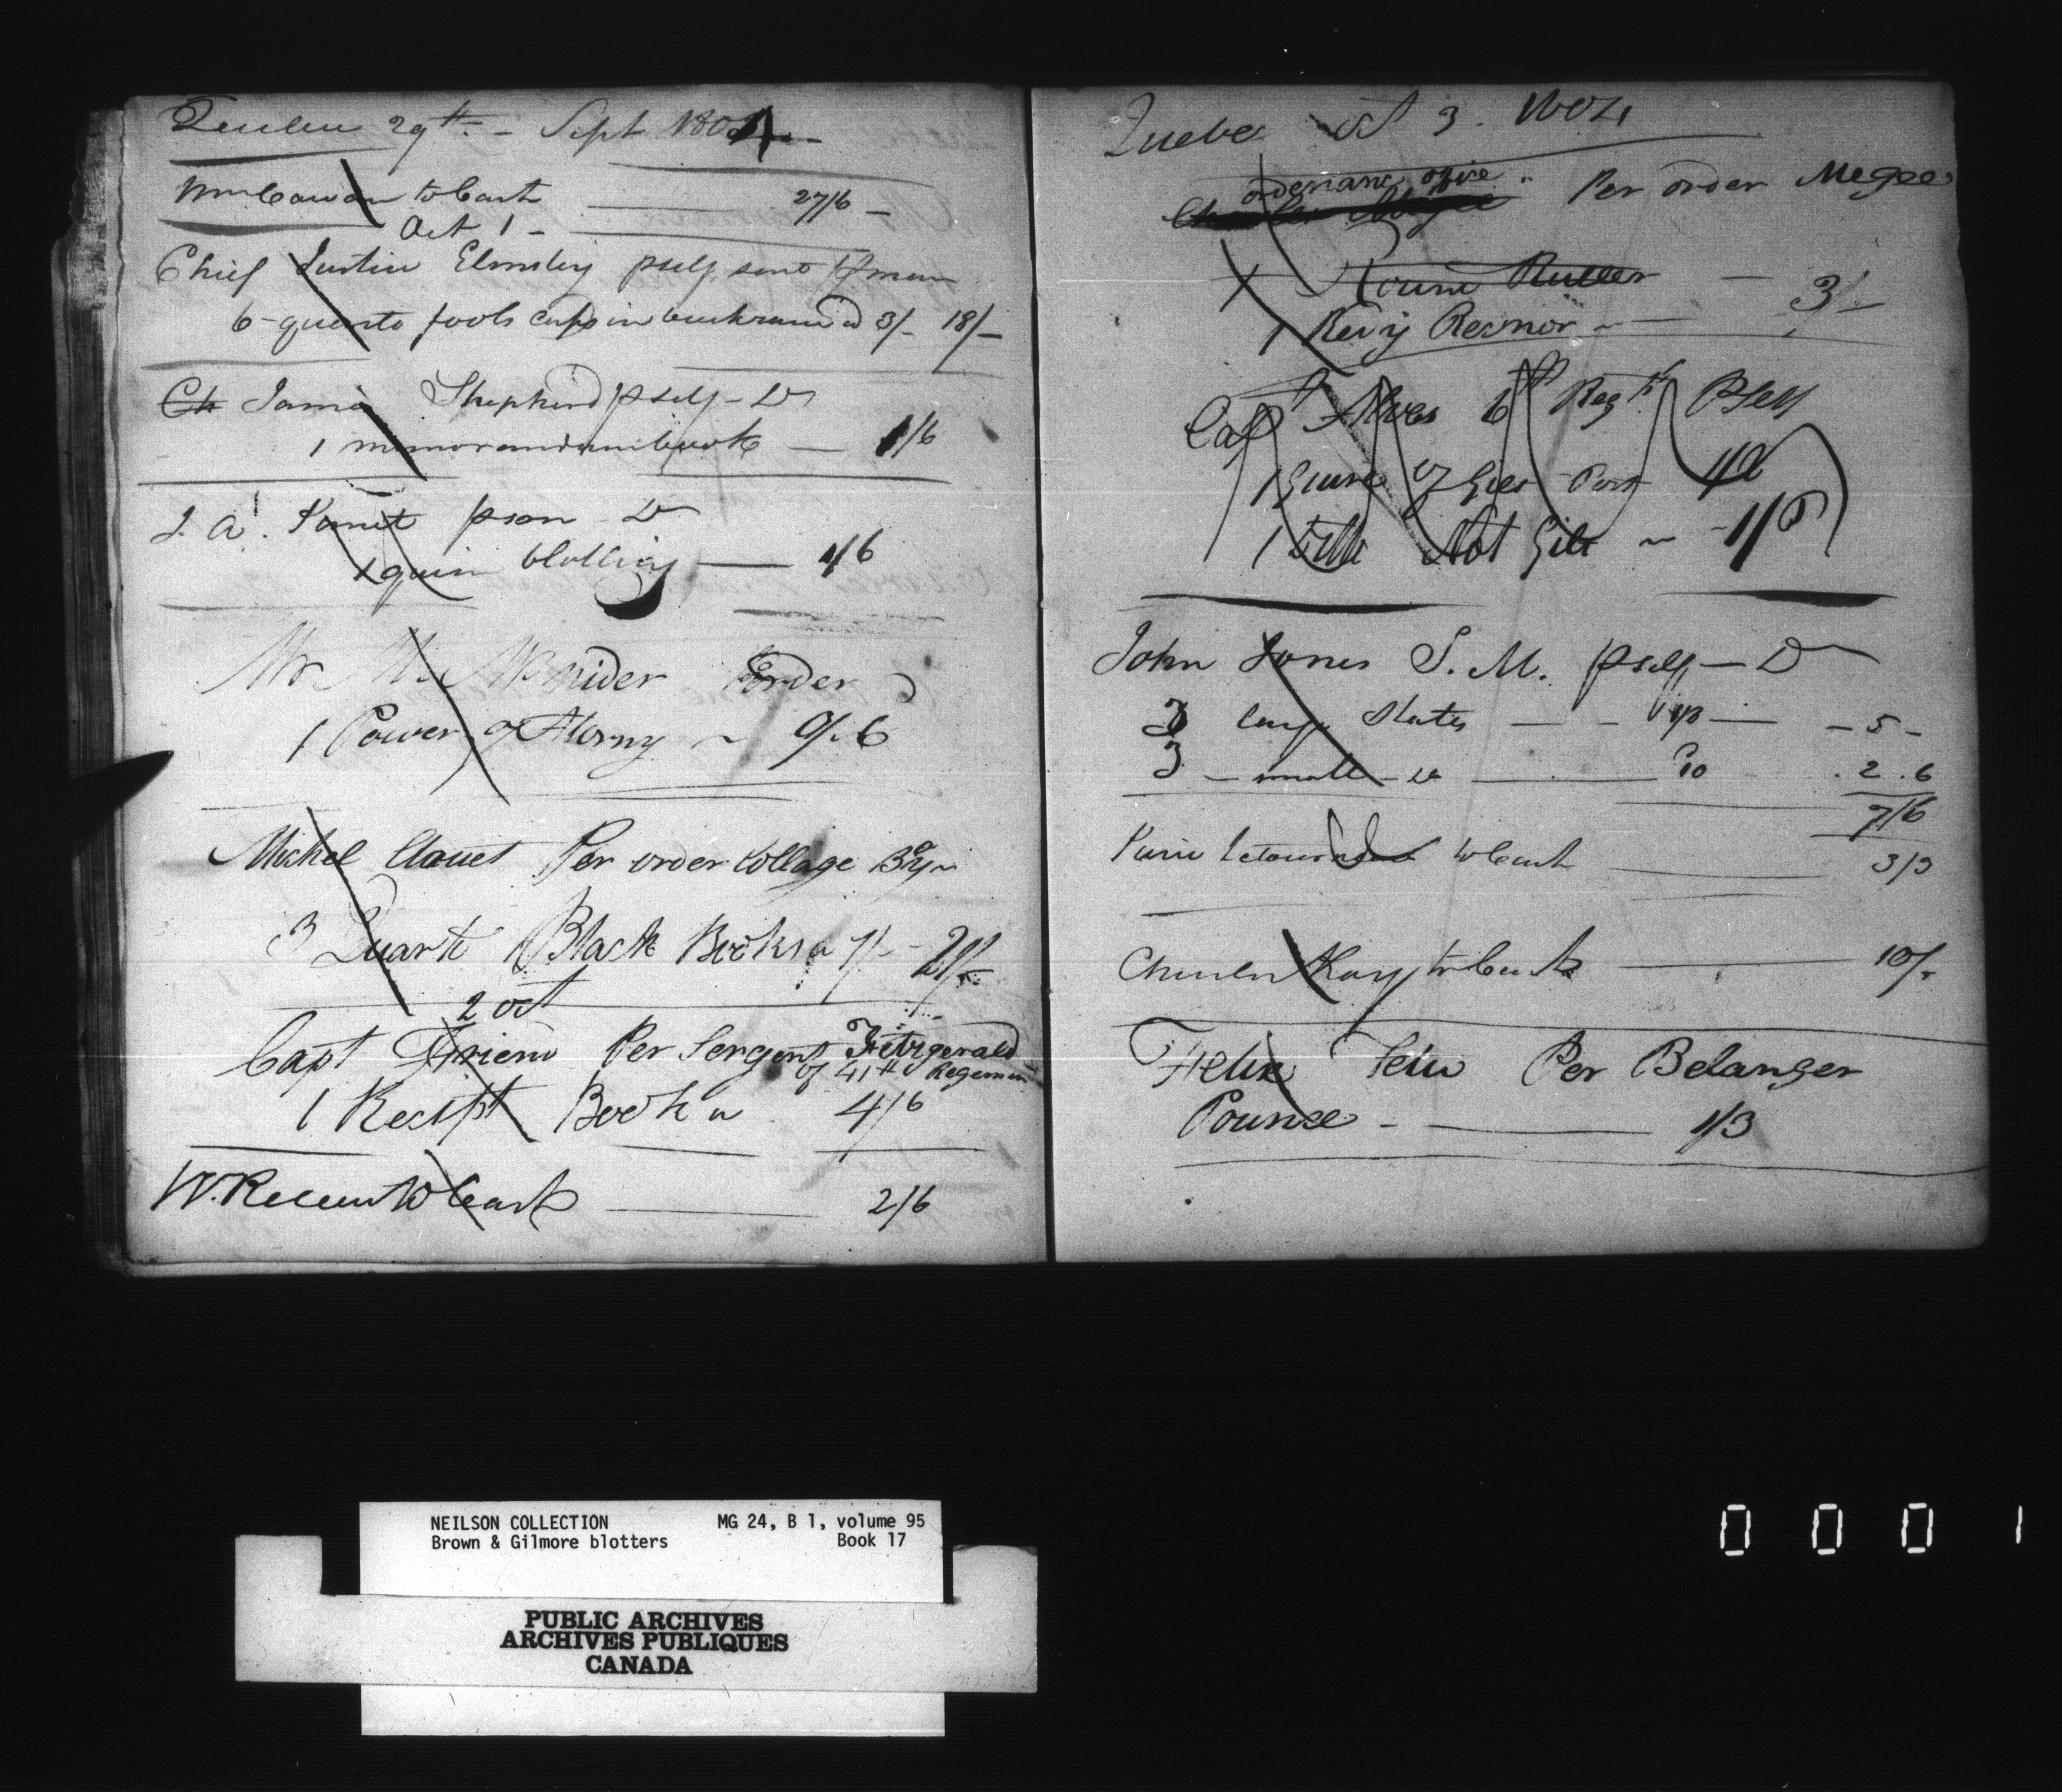 29th - Sept 1804
Wm Cowan to Cash 27/6 -
Oct 1 -
Chief Justice Elmsley pself sent pr man
6 - quarto fools caps in buckram a 3/- 18/-
Ch James Shepherd pself - Dr
1 memorandum book — 1/6
J. A. Panet pson Dr
1 quire blotting — 1/6
Mr M. McNider order
1 Power of Atorny ~ 0/.6
Michel Clouet Per order Collage
3 Quarto Black Books a 7/- 21/-
2 oct
Capt Friend Per Sergent Fitzgerald
of 41st Regemen
1 Recipt Book a 4/6
W. to Cash 2/6
Quebec Oct 3. 1804
ordenance ofice Per order Megee
1 Round Ruller —
1 3/-
Capt Alves 6th Regt Pself
1 Quire of Gilt Post
1 Ditto Not Gilt ~ - 1/6
John Jones S. M. pself - Dr
large Slates — - 1/8 — - 5 -
3 - small - do — 10 2 . 6
7/6
to Cash 3/3
Charles Hay to Cash — 10/-
Felix Tetu Per Belanger
Pounse - — 1/3
NEILSON COLLECTION MG 24, B 1, volume 95
Brown & Gilmore blotters Book 17
PUBLIC ARCHIVES
ARCHIVES PUBLIQUES
CANADA
0 0 0 1